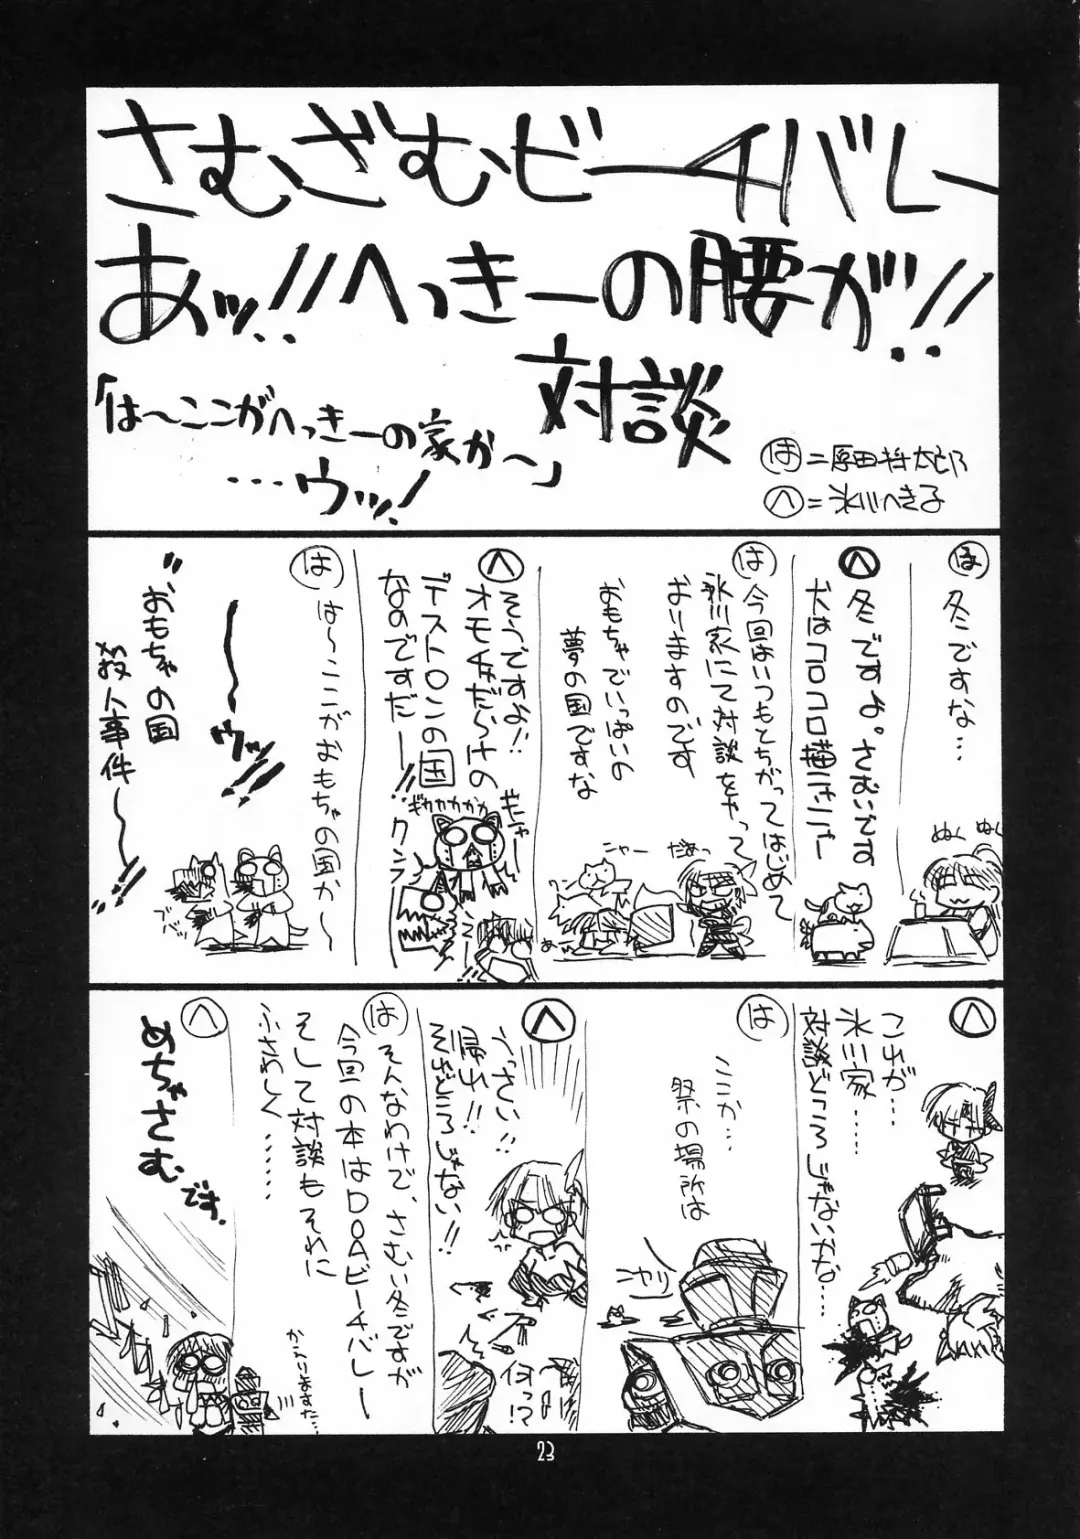 さむざむビーチバレー
あッ!!へっきーの腰が!!
対談
「は～ここがへっきーの家か～」
…ウッ!
は=原田将太郎
へ=氷川へきる
は
冬ですな…
ぬく ぬく
へ
冬ですよ。さむいです
犬はコロコロ猫ニャーニャー
は
今回はいつもとちがってはじめて
氷川家にて対談をやって
おりますのです
おもちゃでいっぱいの
夢の国ですな
ニャー
だぁっ
へ
そうですよ!!
オモチャだらけの
デストロンの国
なのですだー!!
ギニャー
ギカカカカカ
は
は～ここがおもちゃの国か～
ウッ
"おもちゃの国
殺人事件～!!
へ
これが…
氷川家……
対談どころじゃないかな…
は
ここか…
祭の場所は
ニヤリ
へ
うっさい!!
帰れ!!
それどころじゃない!!
何っ!?
は
そんなわけで、さむい冬ですが
今回の本はDOAビーチバレー
そして対談もそれに
ふさわしく……
へ
めちゃさむです。
23